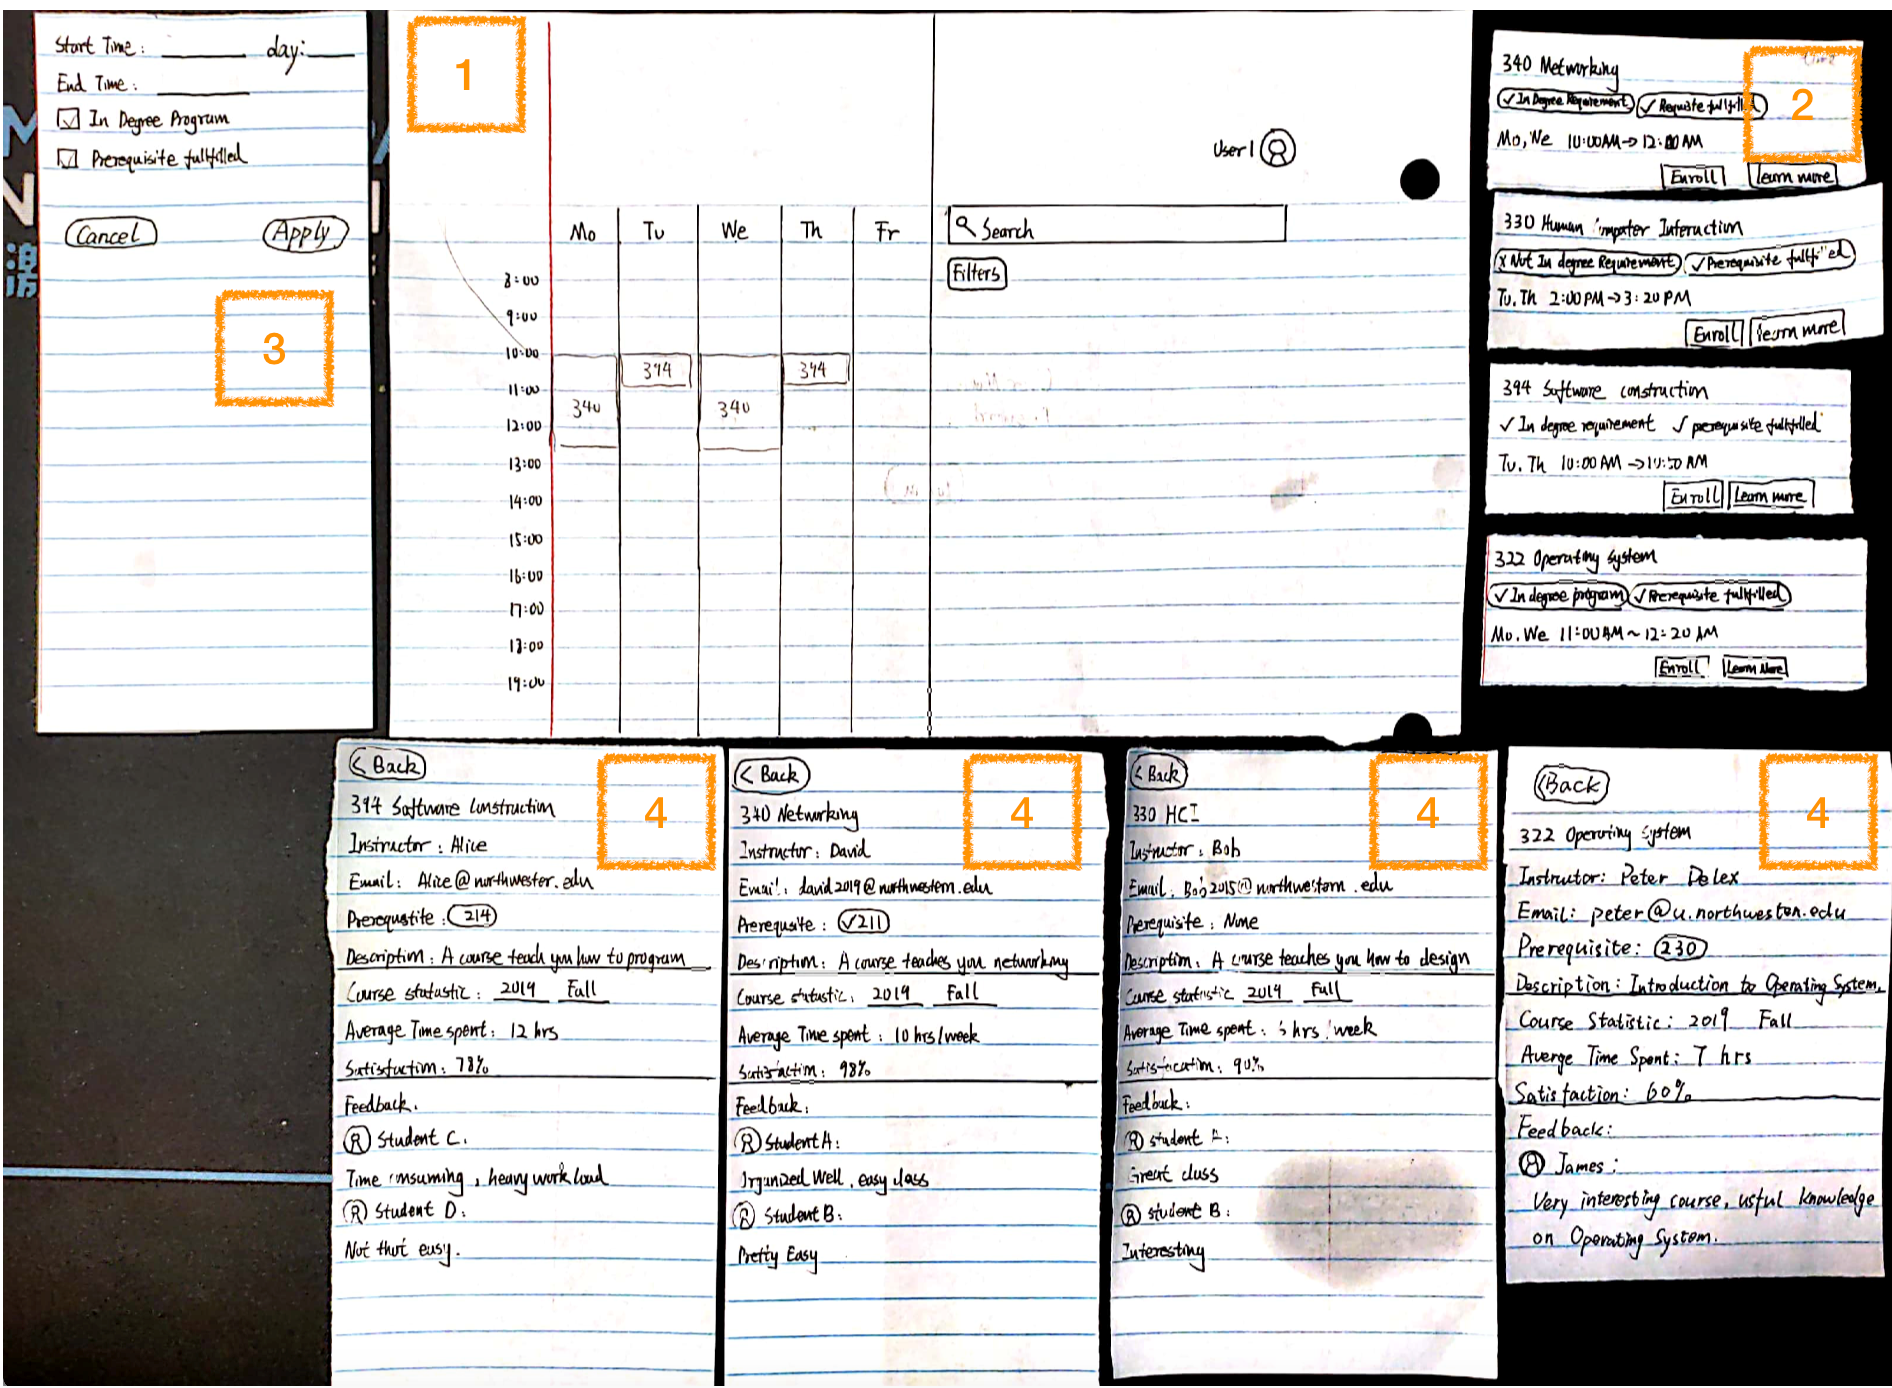 Start Time: day:
End Time:
In Degree Program
Prerequisite fullfilled
Cancel Apply
3
1
User1
Mo Tu We Th Fr
Search
Filters
8:00
9:00
10:00
394 394
11:00
340 340
12:00
13:00
14:00
15:00
16:00
17:00
18:00
19:00
2
340 Networking
✓ In Degree Requirement ✓ Requisite fullfilled
Mo, We 10:00AM → 12:00 AM
Enroll Learn more
330 Human Computer Interaction
x Not In degree Requirement ✓ Prerequisite fulfilled
Tu. Th 2:00 PM → 3:20 PM
Enroll Learn more
394 Software construction
✓ In degree requirement ✓ prerequisite fullfilled
Tu. Th 10:00 AM → 10:50 AM
Enroll Learn more
322 Operating System
✓ In degree program ✓ Prerequisite fullfilled
Mo. We 11:00 AM ~ 12:20 AM
Enroll Learn More
< Back
4
394 Software Construction
Instructor: Alice
Email: Alice@northwester.edu
Prerequstite: 214
Description: A course teach you how to program
Course statustic: 2019 Fall
Average Time spent: 12 hrs
Satisfaction: 78%
Feedback.
Student C.
Time consuming, heavy work load
Student D:
Not that easy.
< Back
4
340 Networking
Instructor: David
Email: david2019@northwestern.edu
Prerequsite: ✓211
Description: A course teaches you networking
Course statustic: 2019 Fall
Average Time spent: 10 hrs/week
Satisfaction: 98%
Feedback:
Student A:
Organized Well, easy class
Student B:
Pretty Easy
< Back
4
330 HCI
Instructor: Bob
Email. Bob2015@northwestern.edu
Prerequisite: None
Description. A course teaches you how to design
Course statustic 2019 Fall
Average Time spent: hrs/week
90%
Feedback:
Student
Great class
student B:
Interesting
<Back
4
322 Operating System
Instructor: Peter Delex
Email: peter@u.northweston.edu
Prerequisite: 230
Description: Introduction to Operating System.
Course Statistic: 2019 Fall
Averge Time Spent: 7 hrs
Satisfaction: 60%
Feedback:
James:
Very interesting course, usful knowledge
on Operating System.